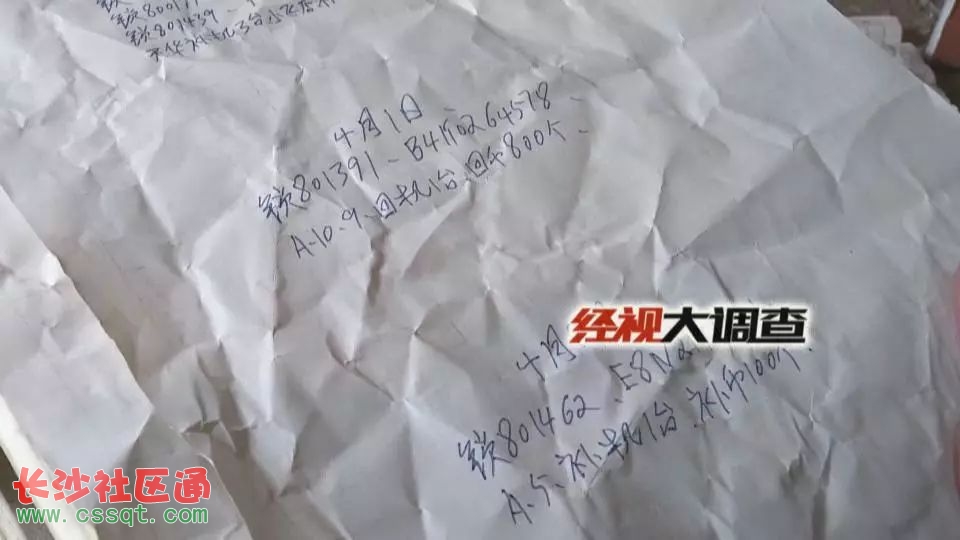 锁801439、
4月1日
锁801391、B4.No264578、
A、10、9、回机1台、回币800个、
经视大调查
4月
锁801462、E8No
A、5、补机1台、补币100个.
长沙社区通
www.cssqt.com